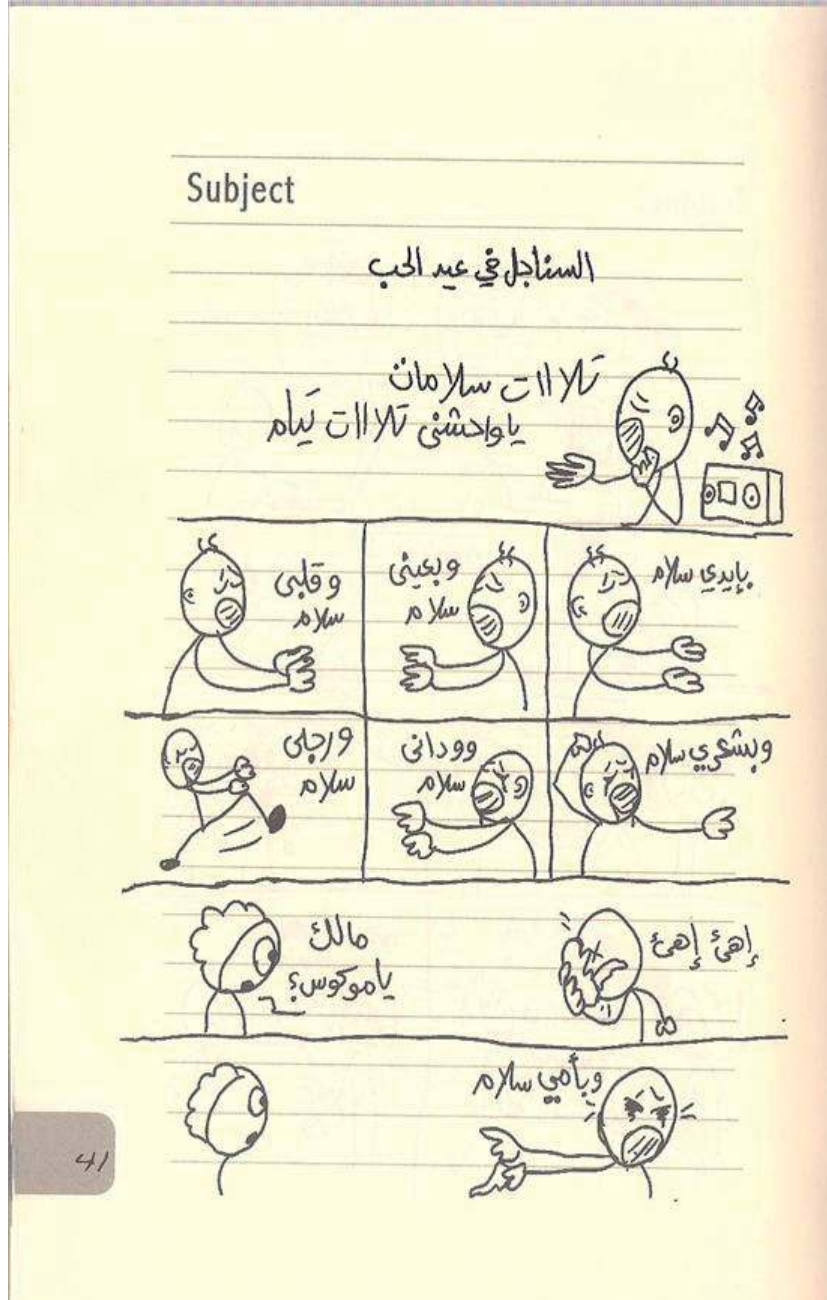 Subject
السناجل في عيد الحب
تلاااات سلامات
ياواحشني تلاااات تيام
بإيدي سلام
وبعيني
سلام
وقلبي
سلام
وبشعري سلام
ووداني
سلام
ورجلي
سلام
إهئ إهئ
مالك
ياموكوس؟
وبأمي سلام
41